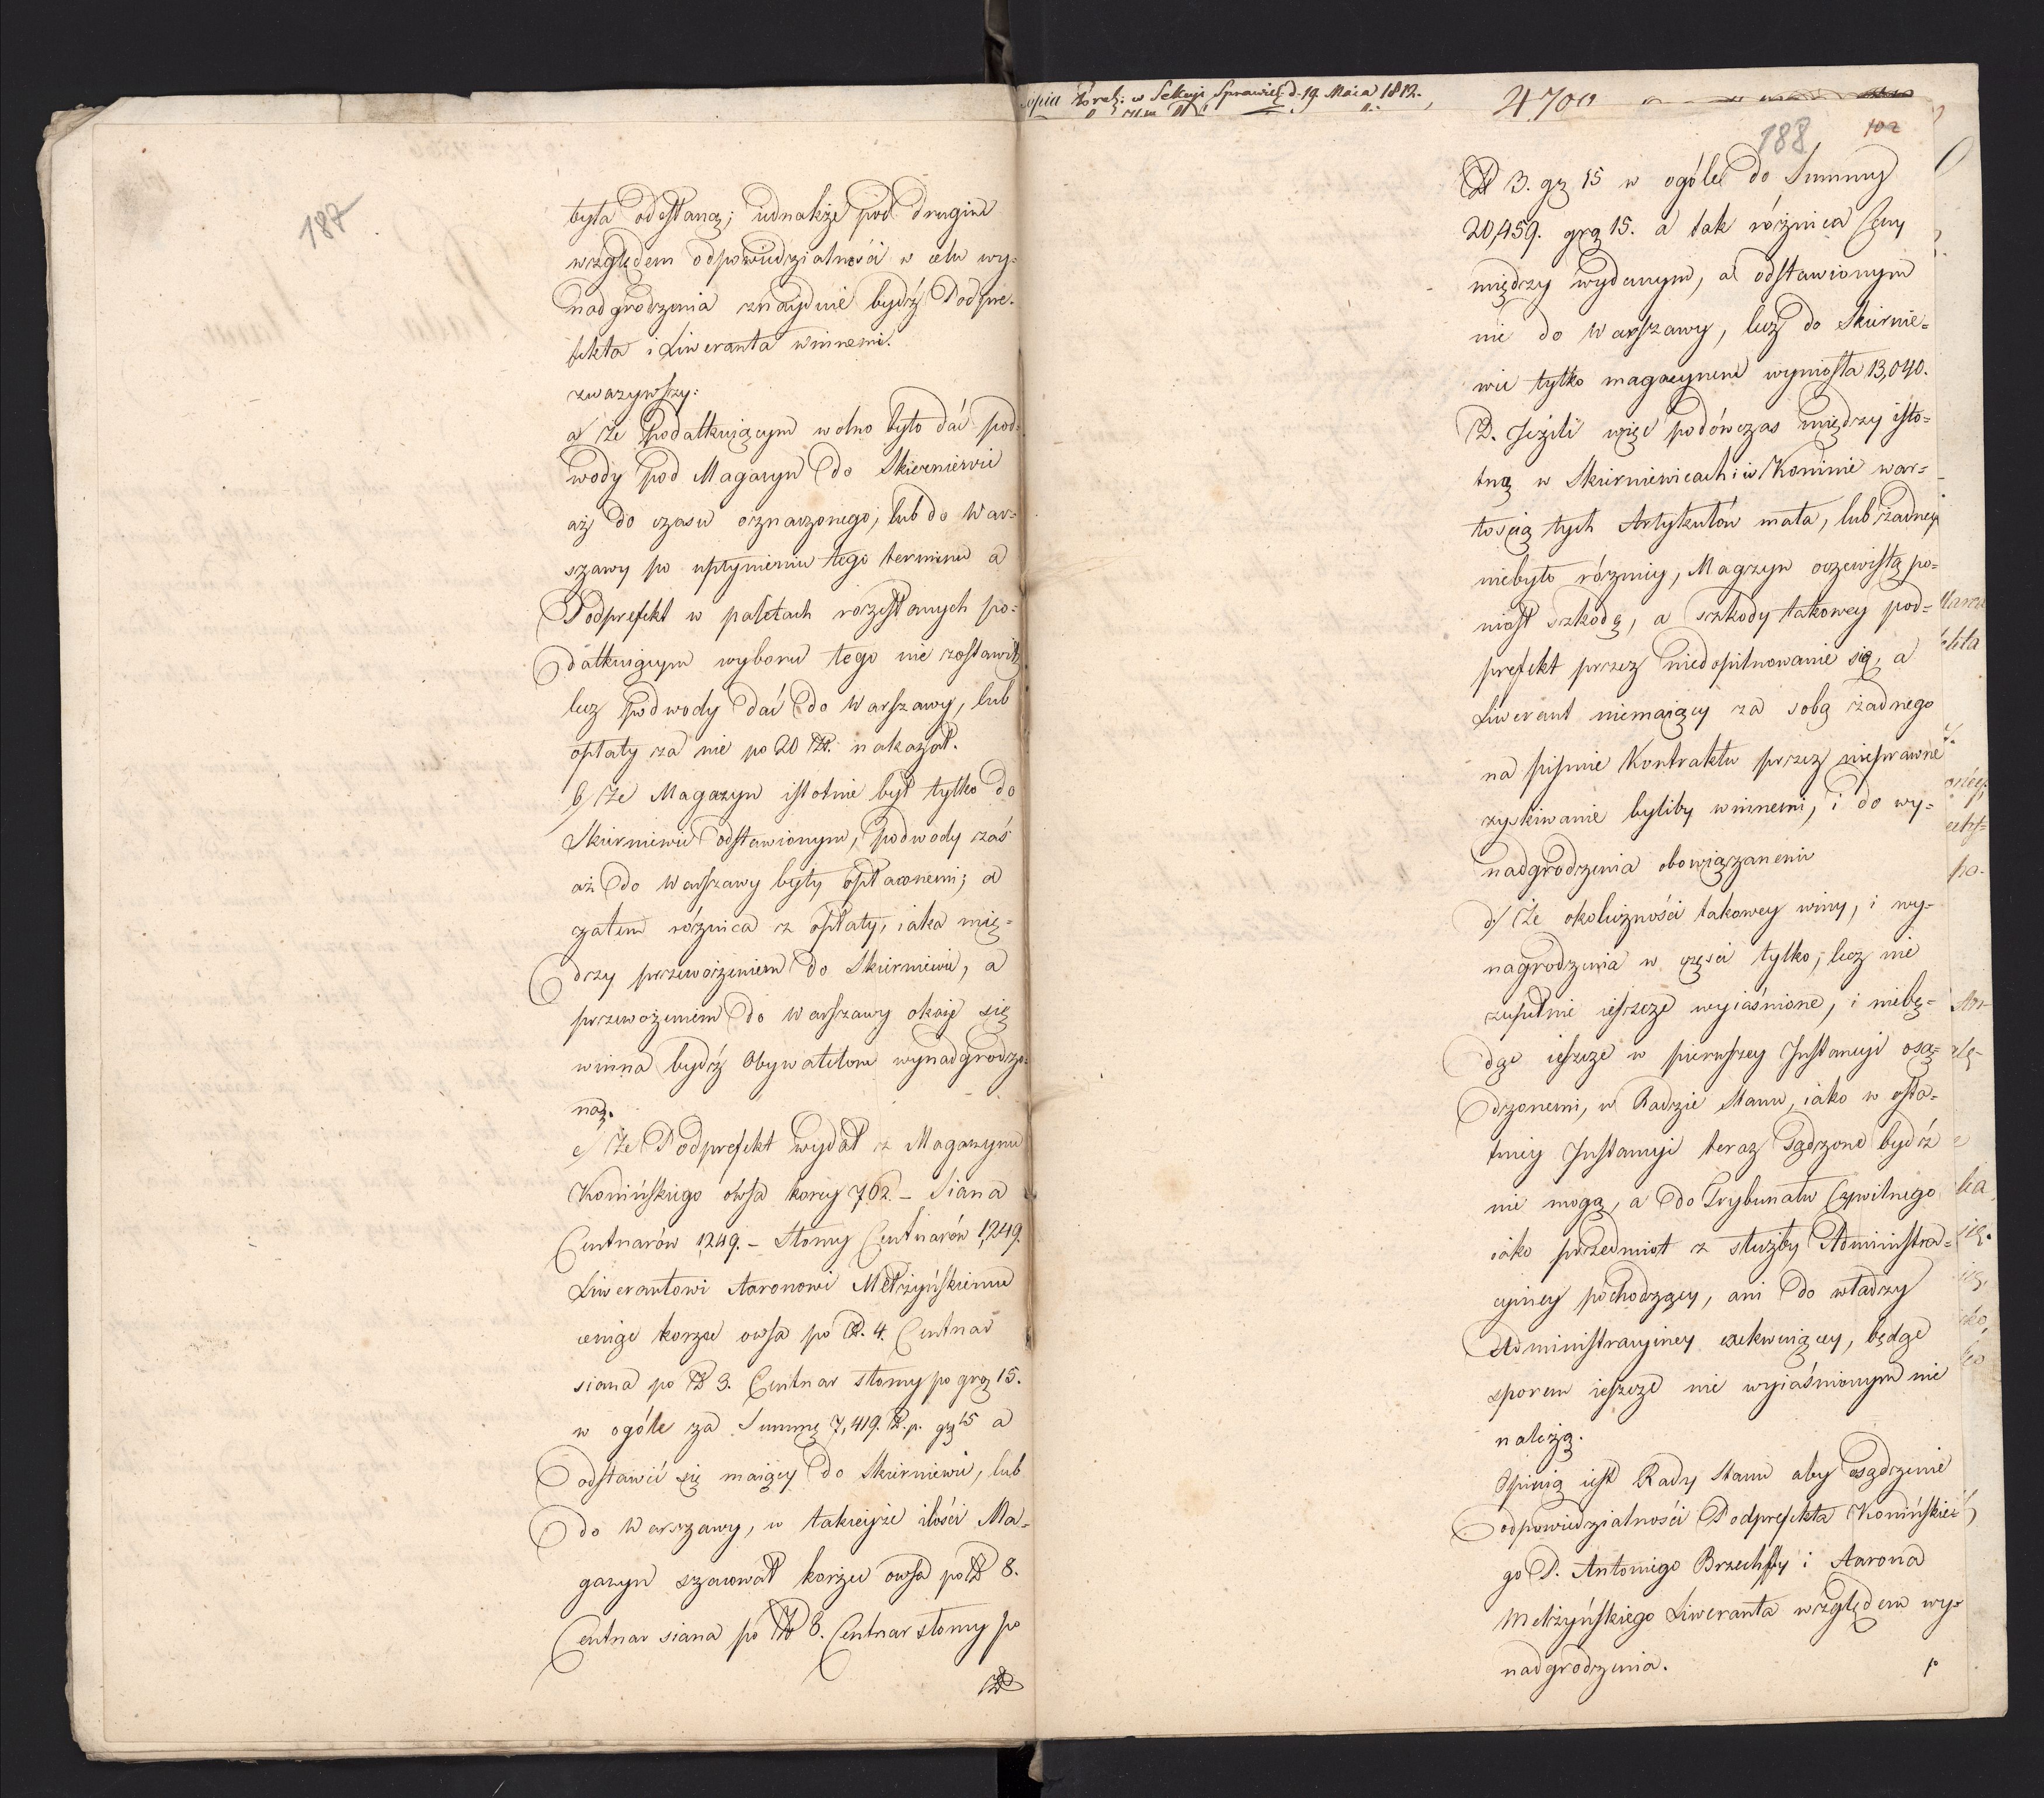 187
była odesłaną; iednakże pod drugim
względem odpowiedzialności w celu wy-
nadgrodzenia znayduie bydź Podpre-
fekta i Liweranta winnemi.
zważywszy:
a/ że podatkuiącym wolno było dać pod-
wody pod Magazyn do Skierniewic
aż do czasu oznaczonego, lub do War-
szawy po upłynieniu tego terminu a
Podprefekt w paletach rozesłanych po-
datkuiącym wyboru tego nie zostawił
lecz podwody dać do Warszawy, lub
opłaty za nie po 20 Zł. nakazał.
b/ że Magazyn istotnie był tylko do
Skierniewic odstawionym, podwody zaś
aż do Warszawy były opłaconemi; a
zatem różnica z opłaty, iaka mię-
dzy przewożeniem do Skierniewic, a
przewożeniem do Warszawy okaże się
winna bydź Obywatelom wynadgrodzo-
ną.
c/ że Podprefekt wydał z Magazynu
Konińskiego owsa korcy 762. – Siana
Centnarów 1249. – Słomy Centnarów 1,249.
Liwerantowi Aaronowi Mełżyńskiemu
ceniąc korzec owsa po Zł. 4. Centnar
siana po Zł 3. Centnar słomy po grą 15.
w ogóle za Summę 7,419. Zł. p. gr 15 a
odstawić się maiący do Skierniewic, lub
do Warszawy, w takieyże ilości Ma-
gazyn szacował korzec owsa po Zł 8.
Centnar siana po Zł 8. Centnar słomy po
Zł
kopia w Sekcyi Sprawied. d. 19. Maia 1812.
4700
188
102
Zł 3. gr 15 w ogóle do Summy
20,459. grą 15. a tak różnica Ceny
między wydanym, a odstawionym
nie do Warszawy, lecz do Skiernie-
wic tylko magazynem wyniosła 13,040.
Zł. Jeżeli więc podówczas między isto-
tną w Skierniewicach i w Koninie war-
tością tych Artykułów mała, lub żadney
niebyło różnicy, Magazyn oczewistą po-
niósł szkodę, a szkody takowey pod-
prefekt przez niedopilnowanie się, a
Liwerant niemaiący za sobą żadnego
na piśmie Kontraktu przez nieprawne
zyskiwanie byliby winnemi, i do wy-
nadgrodzenia obowiązanemi
d/ że okoliczności takowey winy, i wy-
nagrodzenia w części tylko, lecz nie
zupełnie ieszcze wyiaśnione, i niebę-
dąc ieszcze w pierwszey Instancyi osą-
dzonemi, w Radzie Stanu, iako w osta-
tniey Instancyi teraz sądzone bydź
nie mogą, a do Trybunału Cywilnego
iako przedmiot z służby Administra-
cyiney pochodzący, ani do władzy
Administracyiney exekwuiącey, będąc
sporem ieszcze nie wyiaśnionym nie
należą.
Opinią iest Rady Stanu aby osądzenie
odpowiedzialności Podprefekta Konińskie-
go P. Antoniego Brzechffy i Aarona
Mełżyńskiego Liweranta względem wy-
nadgrodzenia.